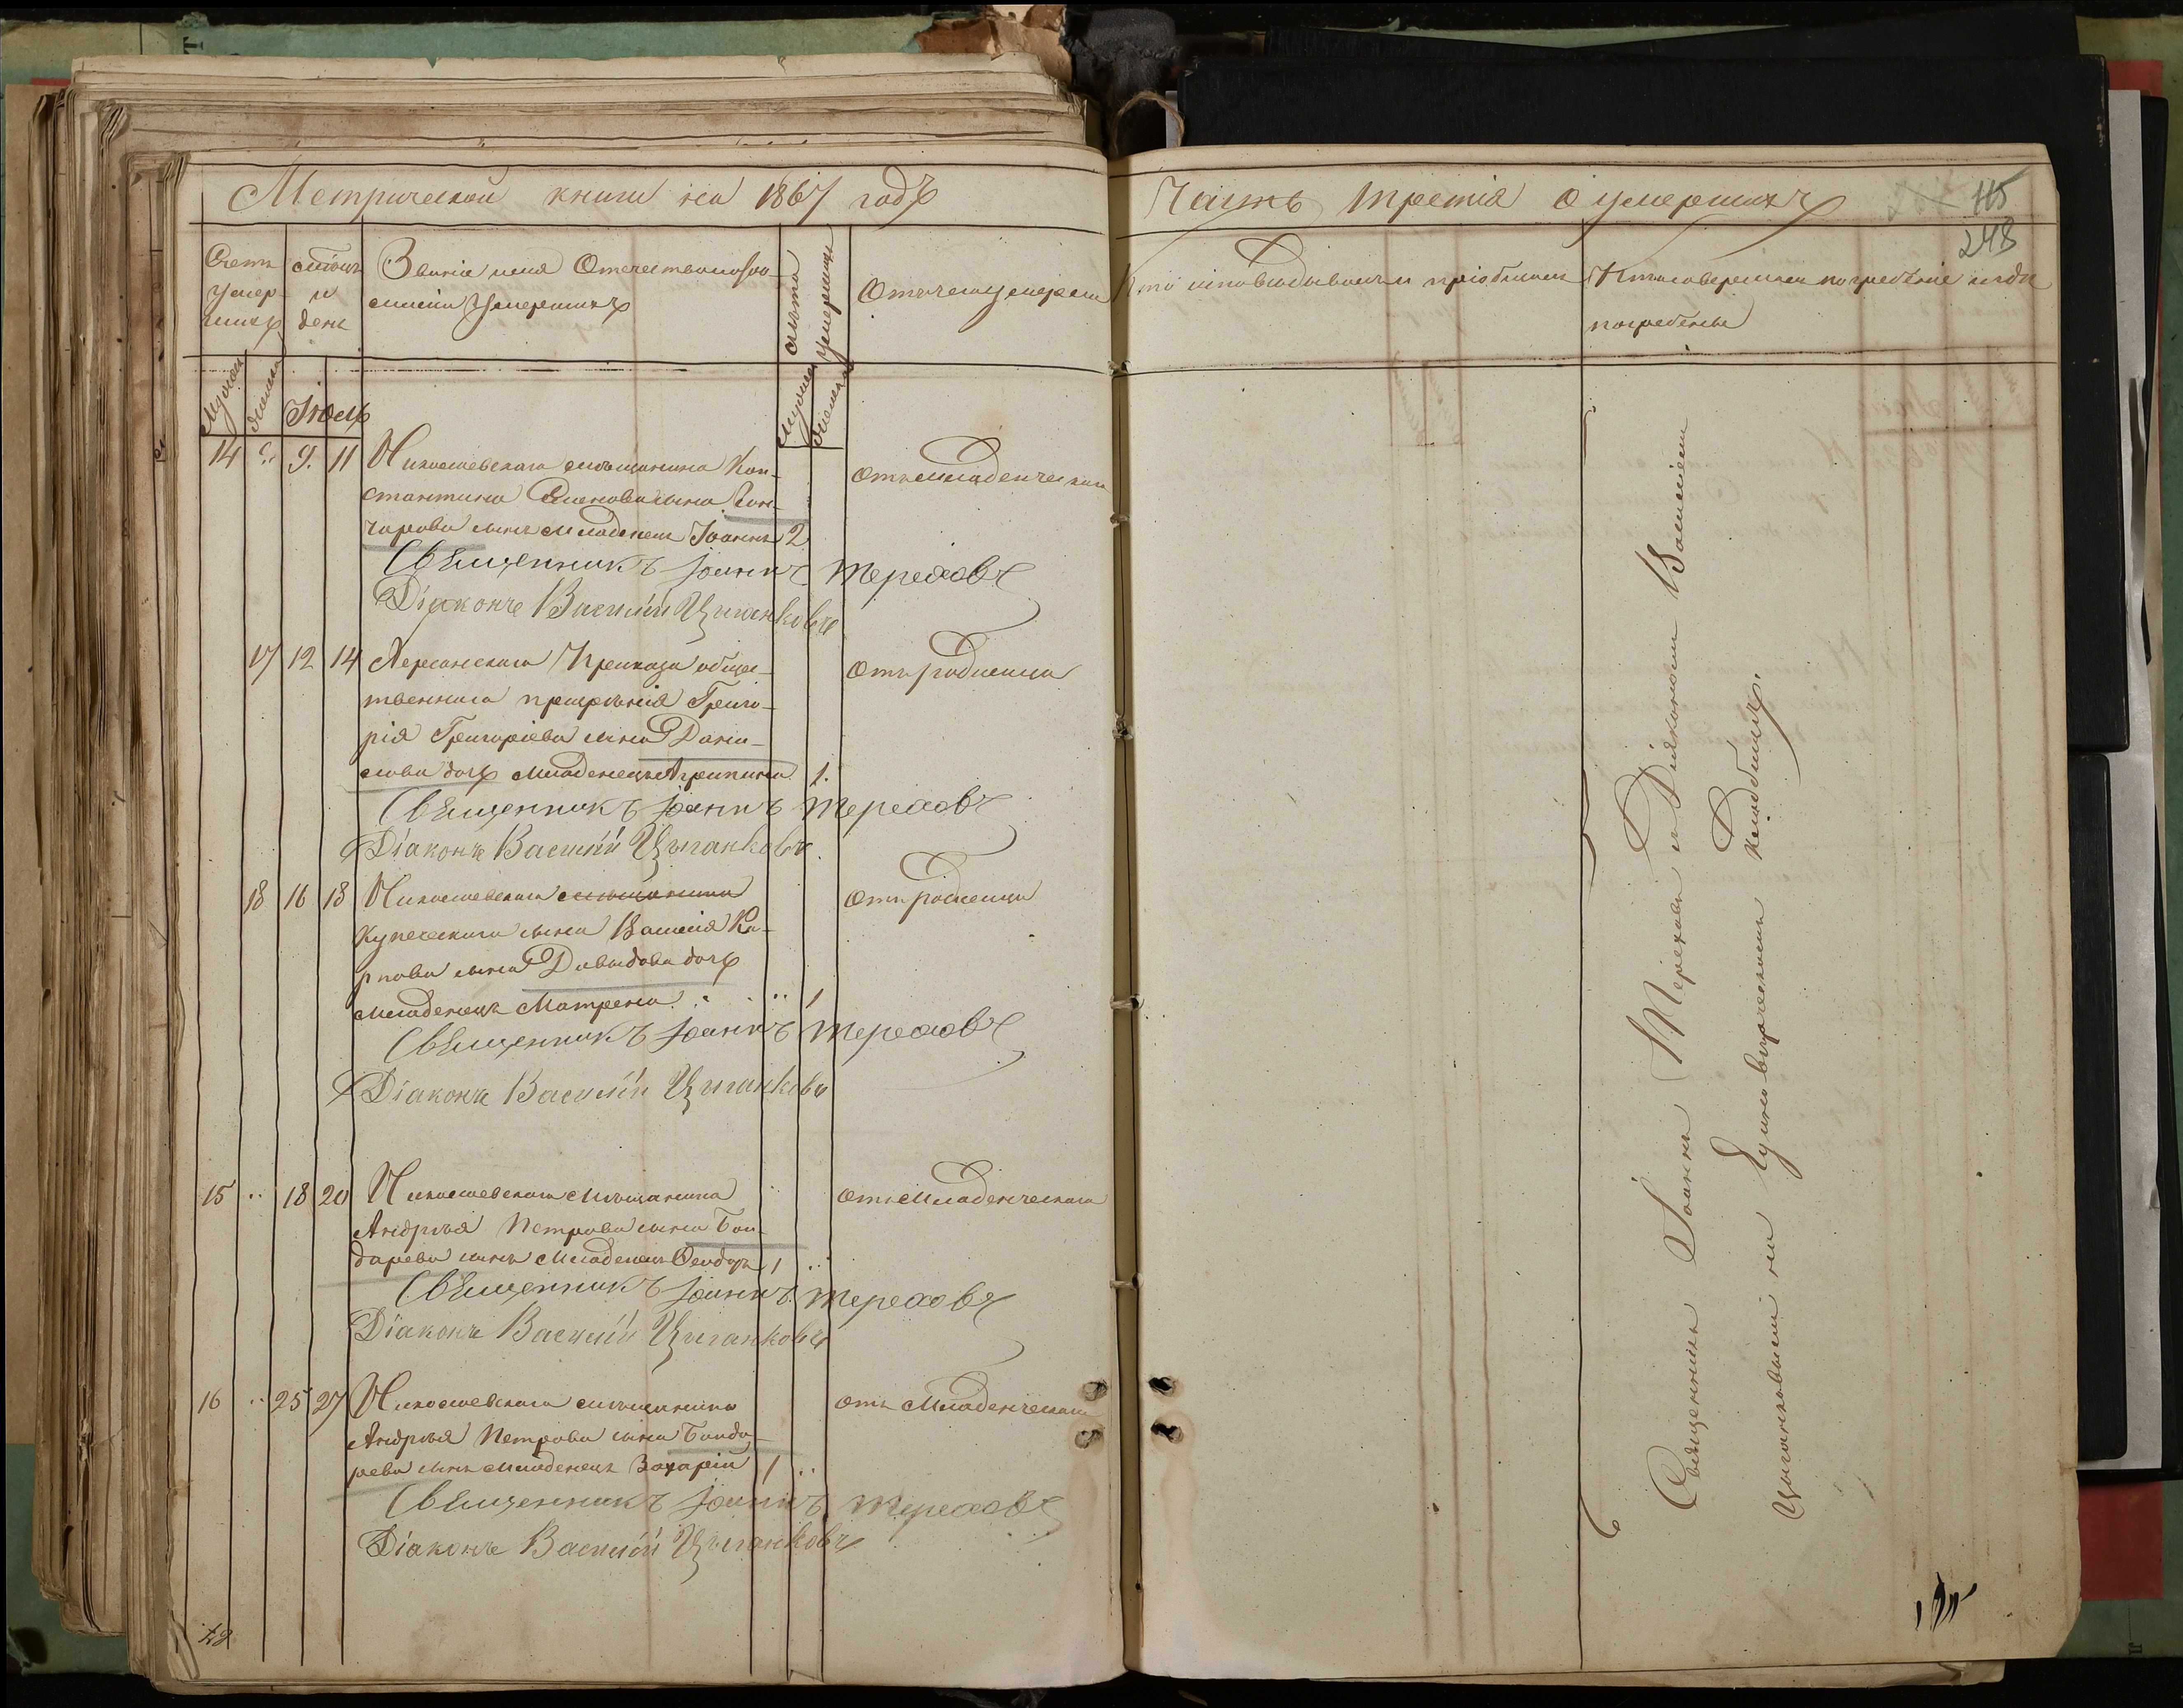 Метрической книги на 1867 годъ
Счетъ умер-шихъ
Мѣсяцъ и день
Званіе имя Отечество и фа-
милія Умершихъ
Лѣта Умершихъ
Отъ чего умерли
Мужеск
Женск
Іюль
Мужеск
Женск
14 9. 11 Николаевскаго мѣщанина Кон-
стантина сына Гон-
чарова сынъ младенецъ Іоаннъ 2
отъ младенческаго
Священникъ Іоаннъ Тереховъ
Діаконъ Василій Цыганковъ
17 12 14 Херсонскаго Приказа общес-
твеннаго призрѣнія Григо-
рія Григоріева сына Дани-
лова дочь младенецъ Агрипина 1.
отъ родимца
Священникъ Іоаннъ Тереховъ
Діаконъ Василій Цыганковъ.
18 16 18 Николаевскаго мѣщанина
купеческаго сына Василія Ка-
рпова сына Давыдова дочь
младенецъ Матрена 1
отъ родимца
Священникъ Іоаннъ Тереховъ
Діаконъ Василій Цыганковъ
15 18 20 Николаевскаго мѣщанина
Андрѣя Петрова сына Бон-
дарева сынъ младенецъ Ѳеодоръ 1
отъ младенческаго
Священникъ Іоаннъ Тереховъ
Діаконъ Василій Цыганковъ
16 25 27 Николаевскаго мѣщанина
Андрѣя Петрова сына Бонда-
рева сынъ младенецъ Захарій 1
отъ младенческаго
Священникъ Іоаннъ Тереховъ
Діаконъ Василій Цыганковъ
Часть третія о умершихъ
115
248
Кто исповѣдывалъ и пріобщалъ
Кто совершалъ погребеніе и гдѣ
погребены
Священникъ Іоаннъ Тереховъ и Діакономъ Василіемъ
Цыганковымъ на Единовѣрческомъ кладбищѣ.